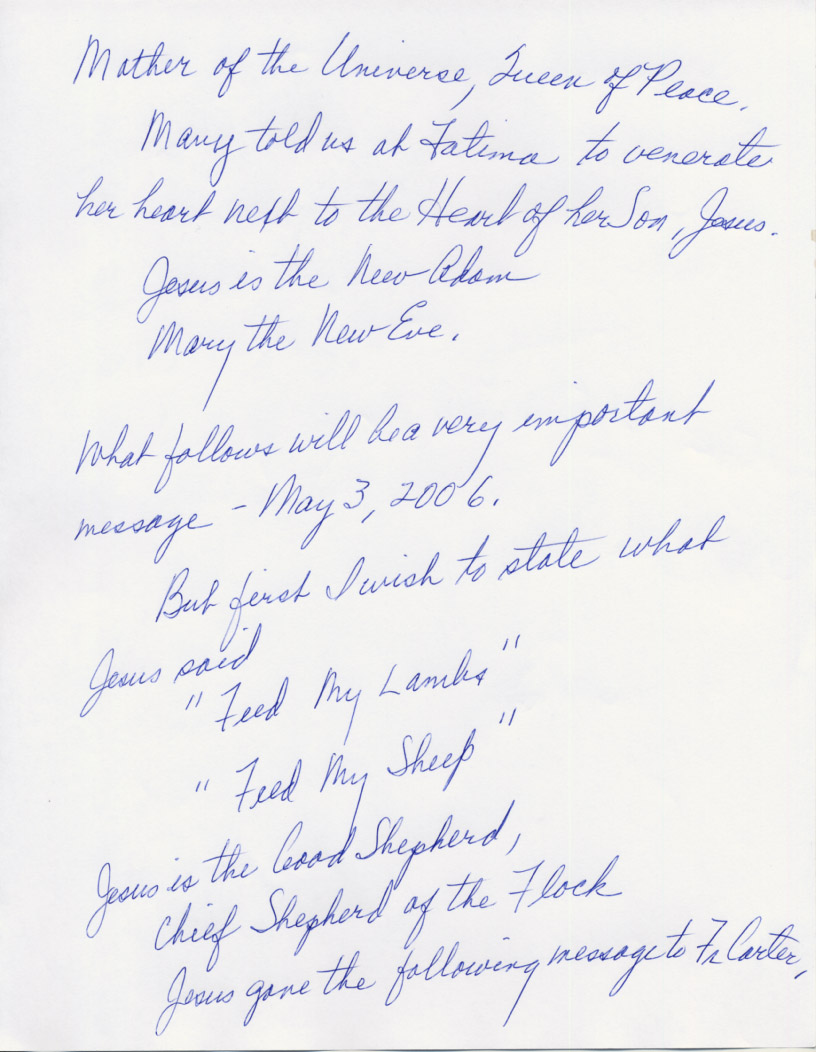 Mother of the Universe, Queen of Peace.
Mary told us at Fatima to venerate
her heart next to the Heart of her Son, Jesus.
Jesus is the New Adam
Mary the New Eve.
What follows will be a very important
message - May 3, 2006.
But first I wish to state what
Jesus said
"Feed My Lambs"
"Feed My Sheep"
Jesus is the Good Shepherd,
Chief Shepherd of the Flock
Jesus gave the following message to Fr Carter,